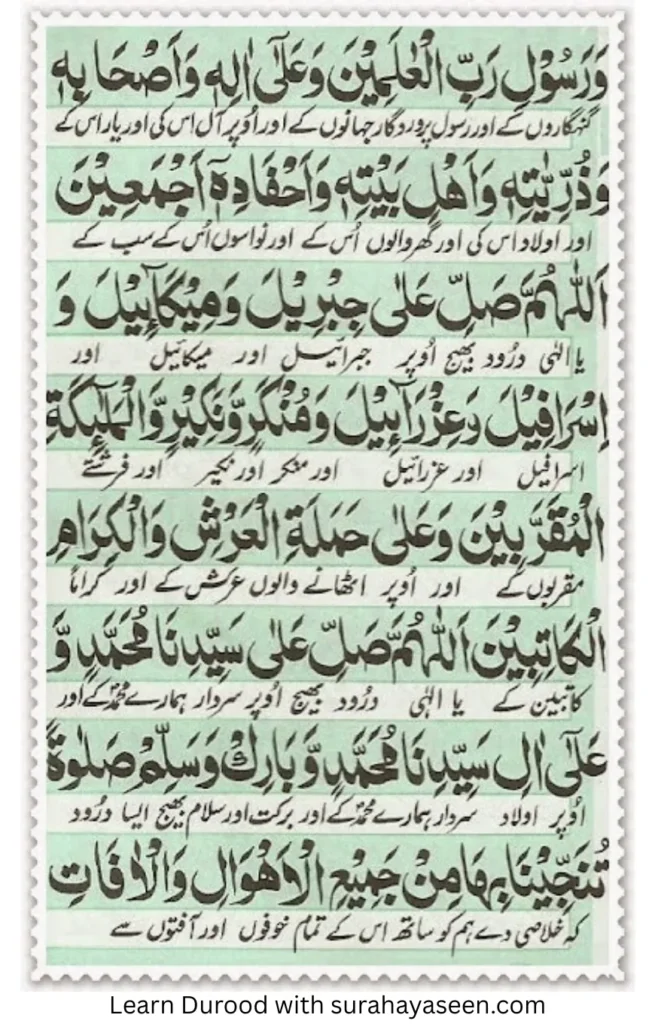 وَرَسُوْلِ رَبِّ الْعٰلَمِيْنَ وَعَلٰٓى اٰلِهٖ وَاَصْحَابِهٖ
گنہگاروں کے اور رسول پروردگار جہانوں کے اور اُوپر آل اس کی اور یار اس کے
وَذُرِّيّٰتِهٖ وَاَهْلِ بَيْتِهٖ وَاَحْفَادِهٖٓ اَجْمَعِيْنَ
اور اولاد اس کی اور گھر والوں اُس کے اور نواسوں اُس کے سب کے
اَللّٰهُمَّ صَلِّ عَلٰى جِبْرِيْلَ وَمِيْكَآئِيْلَ وَ
یا الٰہی درُود بھیج اُوپر جبرائیل اور میکائیل اور
اِسْرَافِيْلَ وَعِزْرَآئِيْلَ وَمُنْكَرٍ وَّنَكِيْرٍ وَّالْمَلٰٓئِكَةِ
اسرافیل اور عزرائیل اور منکر اور نکیر اور فرشتے
الْمُقَرَّبِيْنَ وَعَلٰى حَمَلَةِ الْعَرْشِ وَالْكِرَامِ
مقربوں کے اور اُوپر اٹھانے والوں عرش کے اور کراماً
الْكَاتِبِيْنَ اَللّٰهُمَّ صَلِّ عَلٰى سَيِّدِنَا مُحَمَّدٍ وَّ
کاتبین کے یا الٰہی درُود بھیج اُوپر سردار ہمارے محمدؐ کے اور
عَلٰٓى اٰلِ سَيِّدِنَا مُحَمَّدٍ وَّبَارِكْ وَسَلِّمْ صَلٰوةً
اُوپر اولاد سردار ہمارے محمدؐ کے اور برکت اور سلام بھیج ایسا درُود
تُنَجِّيْنَا بِهَا مِنْ جَمِيْعِ الْاَهْوَالِ وَالْاٰفَاتِ
کہ خلاصی دے ہم کو ساتھ اس کے تمام خوفوں اور آفتوں سے
Learn Durood with surahayaseen.com